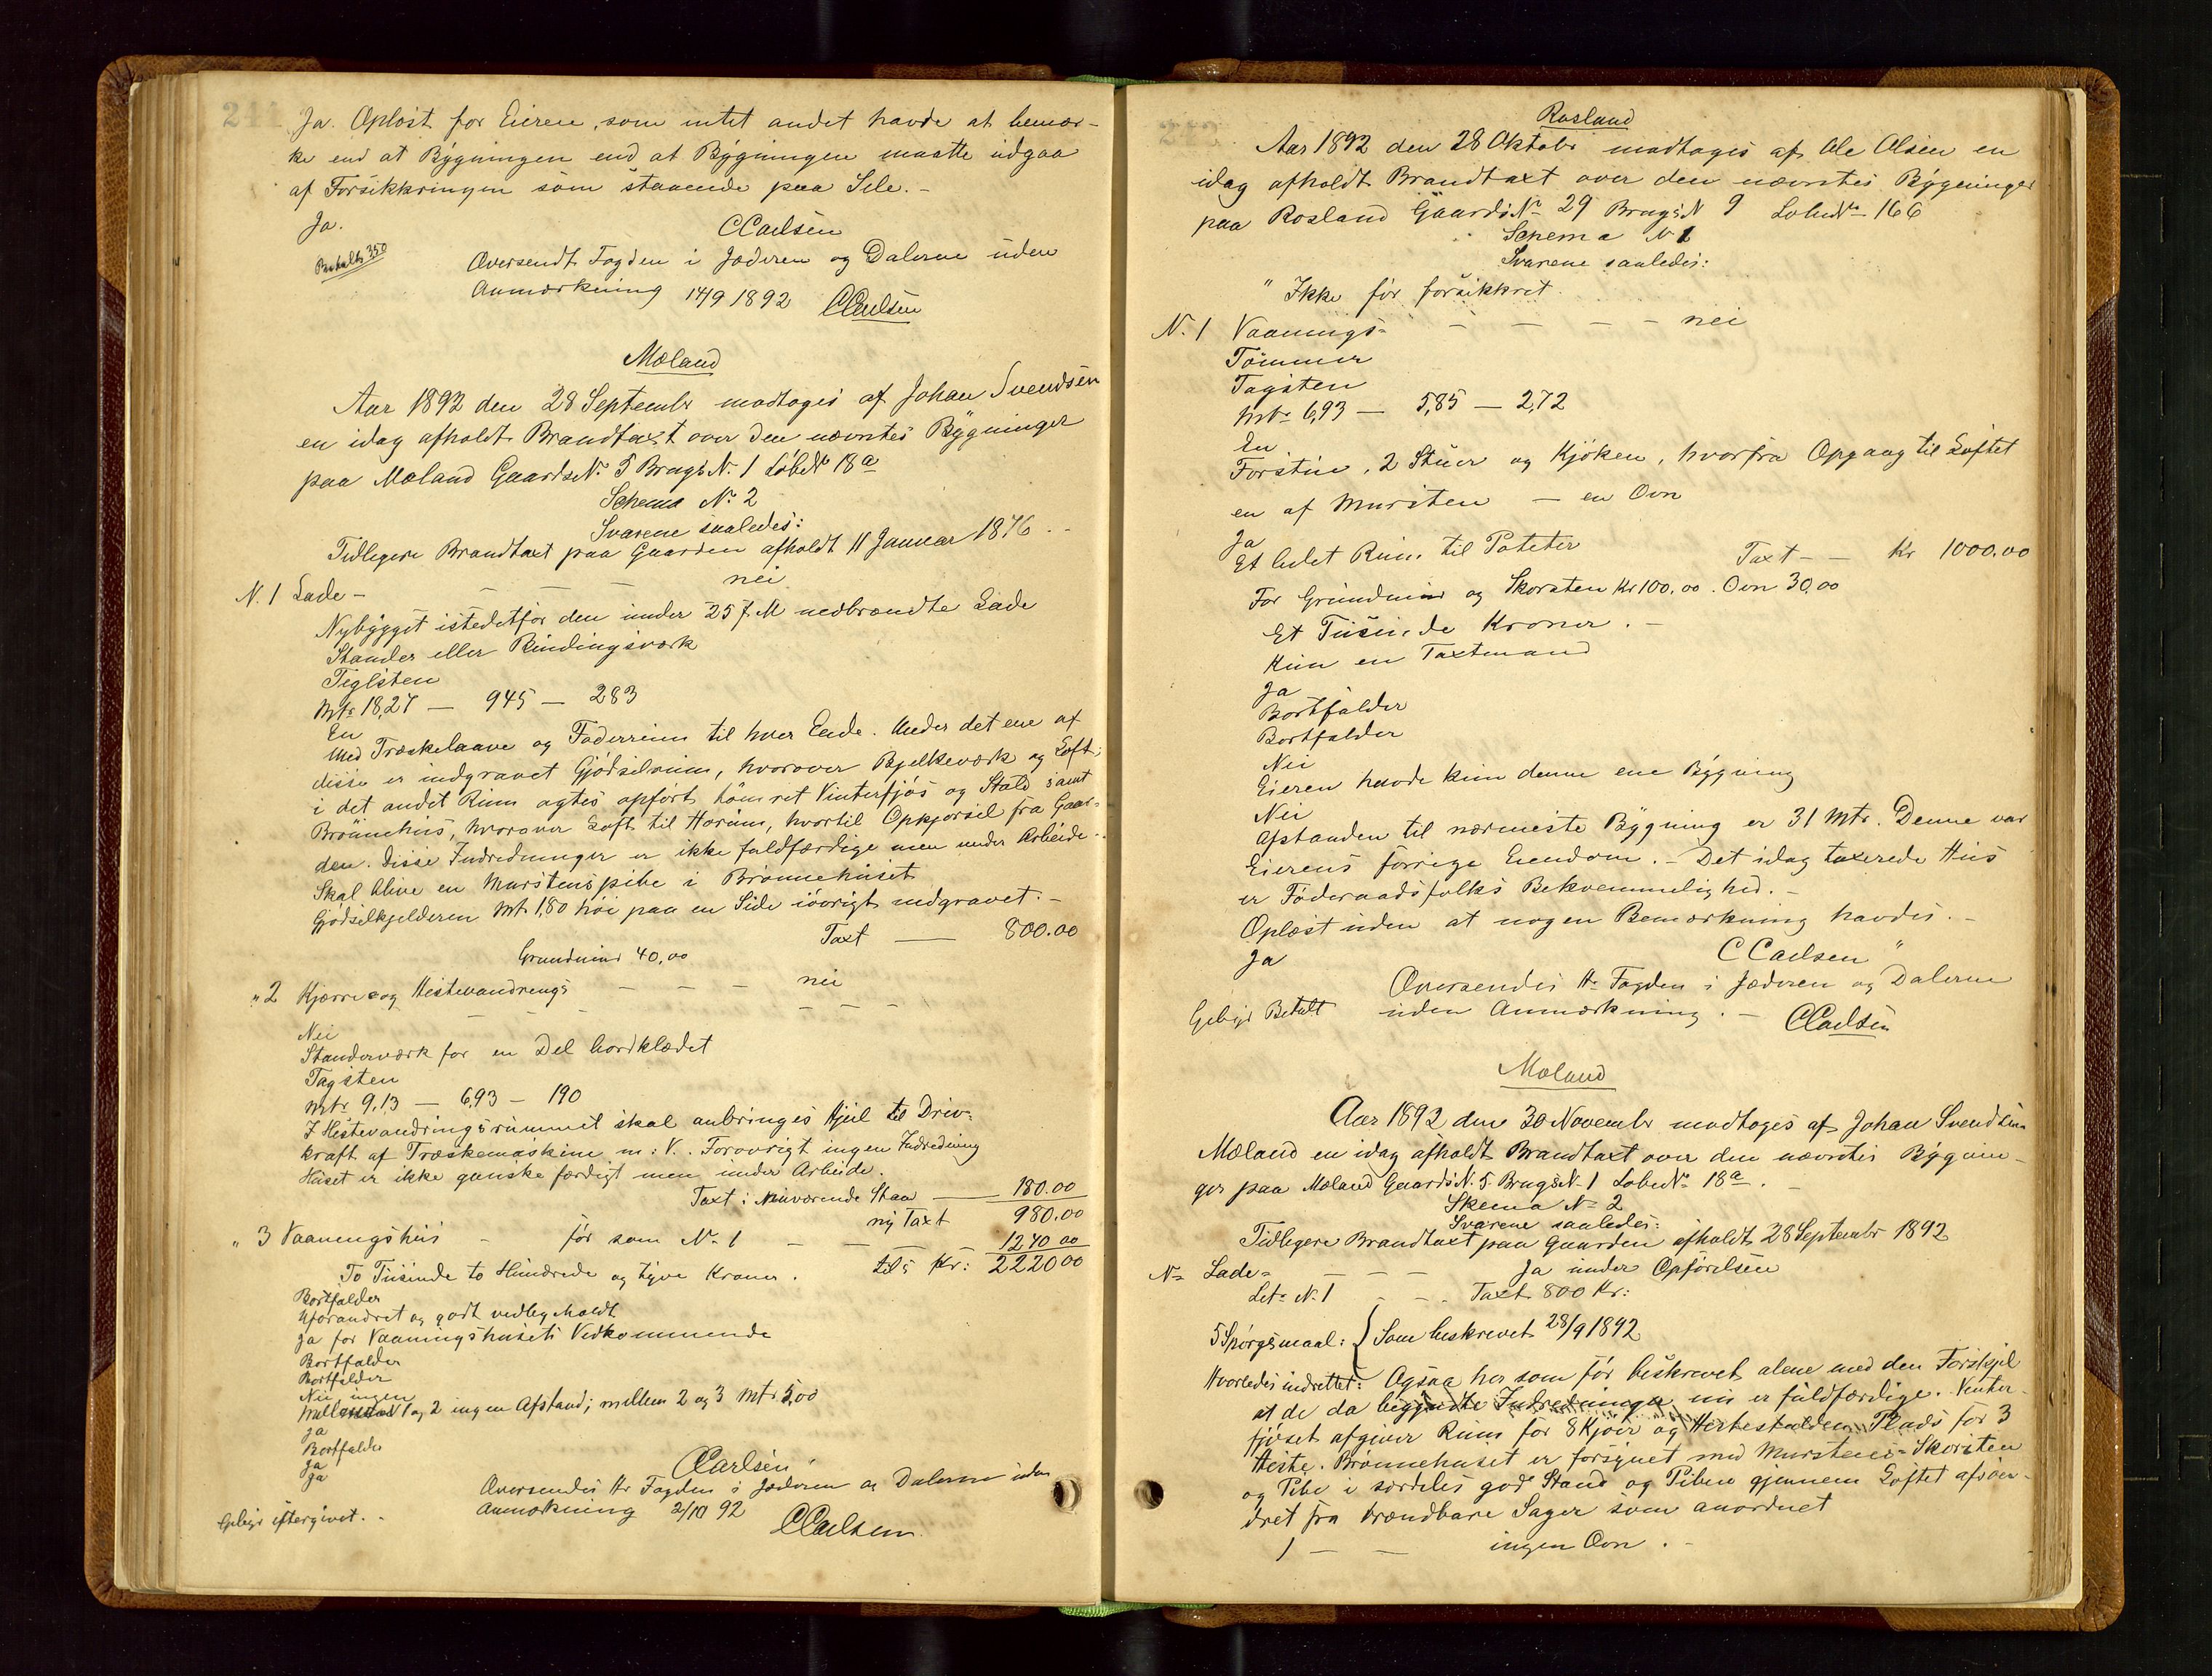 241
Ja. Oplæst for Eieren, som intet andet havde at bemær-
ke end at Bygningen end at Bygningen maatte udgaa
af Forsikkringen som staaende paa Sele. -
Ja.
CCarlsen
Betalt 350
Oversendt Fogden i Jæderen og Dalerne uden
Anmærkning 14/9 1892 CCarlsen
Mæland
Aar 1892 den 28 Septembr modtoges af Johan Svendsen
en idag afholdt Brandtaxt over den nævntes Bygninger
paa Mæland GaardsNo 5 BrugsNo 1 LøbeNo 18a
Schema No 2
Svarene saaledes:
Tidligere Brandtaxt paa Gaarden afholdt 11 Januar 1876 - -
N. 1 Lade - - - - nei
Nybygget istedetfor den under 25 f. M nedbrændte Lade
Stander eller Bindingsværk
Teglsten
Mtr 18,27 — 945 — 283
En
Med Træskelaave og Foderrum til hver Ende. Under det ene af
disse er indgravet Gjødselrum, hvorover Bjelkeværk og Loft;
i det andet Rum agtes opført tømret Vinterfjøs og Stald samt
Brønnehus, hvorover Loft til Hørum, hvortil Opkjørsel fra Gaar-
den. Disse Indredninger er ikke fuldfærdige men under Arbeide. -
Skal blive en Murstenspibe i Brønnehuset
Gjødselkjelderen Mt. 1,80 høi paa en Side iøvrigt nedgravet. -
Taxt — 800.00
Grundmur 40,00
" 2 Kjærre og Hestevandrings - - - nei
- - - - - -
Nei
Standerværk for en Del bordklædet
Tagsten
Mtr 9,13 — 6,93 — 190
I Hestevandringsrummet skal anbringes Hjul til Driv-
kraft af Træskemaskine m: V. . Forøvrigt ingen Indredning
Huset er ikke ganske færdigt men under Arbeide.
Taxt i nuværende Stan — 180.00
ny Taxt 980.00
" 3 Vaaningshus - før som No 1 - - 1240 00
To Tusinde to Hundrede og tyve Kroner. tils Kr: 2220 00
Bortfalder
Uforandret og godt vedligeholdt
Ja for Vaaningshusets Vedkommende
Bortfalder
Bortfalder
Nei ingen
Mellem 1 og 2 ingen Afstand; mellem 2 og 3 Mtr 5,00
Ja
Bortfalder
Ja
Ja
CCarlsen
Oversendes Hr Fogden i Jæderen og Dalerne uden
Anmærkning 2/10 92 CCarlsen
Gebyr eftergivet. -
Rosland
Aar 1892 den 28 Oktobr modtoges af Ole Olsen en
idag afholdt Brandtaxt over den nævntes Bygninger
paa Rosland GaardsNo 29 BrugsN 9 LøbeNo 166
Schema No 1
Svarene saaledes:
" Ikke før forsikkret.
N. 1 Vaanings- - - - - nei
Tømmer
Tagsten
Mtr 6,93 — 5,85 — 2,72
En
Forstue, 2 Stuer og Kjøken, hvorfra Opgang til Loftet
en af Mursten — en Ovn
Ja
Et lidet Rum til Poteter Taxt - - Kr 1000.00
For Grundmur og Skorsten Kr 100,00. Ovn 30,00
Et Tusinde Kroner. -
Kun en Taxtmand
Ja
Bortfalder
Bortfalder
Nei
Eieren havde kun denne ene Bygning
Nei
Afstanden til nærmeste Bygning er 31 Mtr. Denne var
Eierens forrige Eiendom. - Det idag taxerede Hus
er Føderaadsfolks Bekvemmelighed. -
Oplæst uden at nogen Bemærkning havdes. -
Ja CCarlsen "
Oversendes Hr Fogden i Jæderen og Dalerne
Gebyr Betalt uden Anmærkning. - CCarlsen
Mæland
Aar 1892 den 30 Novembr modtoges af Johan Svendsen
Mæland en idag afholdt Brandtaxt over den nævntes Bygnin-
ger paa Mæland GaardsN. 5 BrugsN. 1 LøbeNo 18a. -
Skema No 2
Svarene saaledes:
Tidligere Brandtaxt paa Gaarden afholdt 28 Septembr 1892
No Lade - - - Ja under Opførelsen
Lit. N. 1 - - . Taxt 800 Kr:
5 Spørgsmaal: { Som beskrevet 28/9 1892
Hvorledes indrettet: Ogsaa her som før beskrevet alene med den Forskjel
at de da begyndte Indredninger nu er fuldfærdige. Vinter-
fjøset afgiver Rum for 8 Kjøer og Hestestalden Plads for 3
Heste. Brønnehuset er forsynet med Murstens-Skorsten
og Pibe i særdeles god Stand og Piben gjennem Loftet afsøn-
dret fra brændbare Sager som anordnet
1 — — ingen Ovn. -